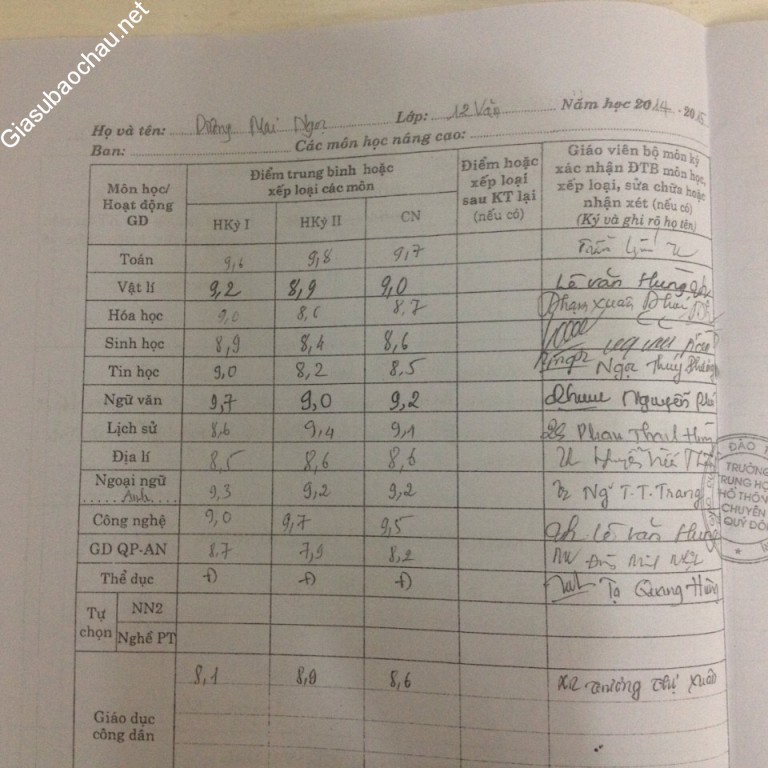 Giasubaochau.net
Họ và tên: Dương Mai Ngọc Lớp: 12 Văn Năm học 2014 - 2015
Ban: Các môn học nâng cao:
Môn học/ Hoạt động GD
Điểm trung bình hoặc xếp loại các môn
HKỳ I HKỳ II CN
Điểm hoặc xếp loại sau KT lại (nếu có)
Giáo viên bộ môn ký xác nhận ĐTB môn học, xếp loại, sửa chữa hoặc nhận xét (nếu có) (Ký và ghi rõ họ tên)
Toán 9,6 9,8 9,7
Vật lí 9,2 8,9 9,0 Lê Văn Hưng
Hóa học 9,0 8,6 8,7 Phạm Xuân
Sinh học 8,9 8,4 8,6
Tin học 9,0 8,2 8,5 Ngọc Thúy
Ngữ văn 9,7 9,0 9,2 Nguyễn
Lịch sử 8,6 9,4 9,1 Phan
Địa lí 8,5 8,6 8,6
Ngoại ngữ Anh 9,3 9,2 9,2 T.T. Trang
Công nghệ 9,0 9,7 9,5 Lê Văn Hưng
GD QP-AN 8,7 7,9 8,2
Thể dục Đ Đ Đ Tạ Quang Hùng
Tự chọn NN2
Nghề PT
Giáo dục công dân 8,1 8,9 8,6 Trương Thị Xuân
ĐÀO
TRƯỜNG
TRUNG HỌC
PHỔ THÔNG
CHUYÊN